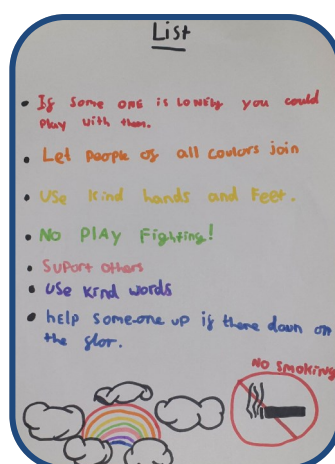 List
• If some one is lonely you could
Play with them.
• Let people of all coulors join
• Use kind hands and Feet.
• No PlAy Fighting!
• Suport others
• Use kind words
• help some-one up if there down on
the flor.
No smoking